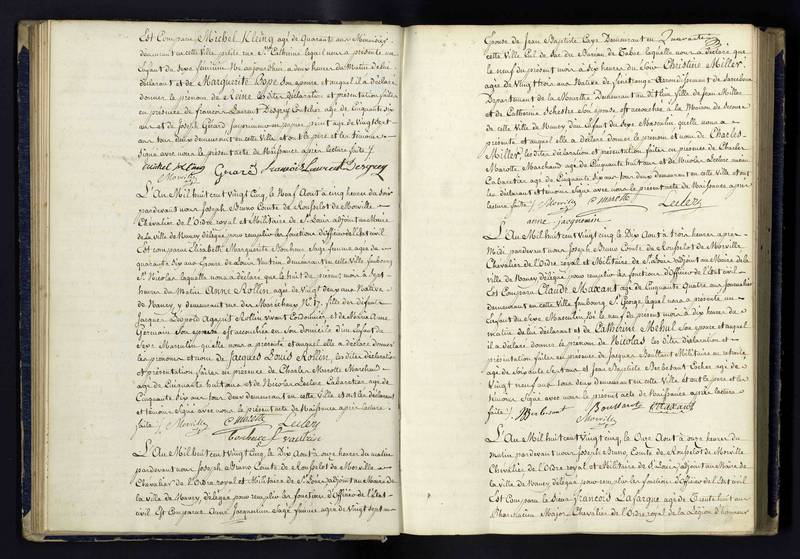 Est Comparu Michel Kleinq agé de Quarante ans Menuisier
demeurant en cette Ville petite rue Ste Catherine lequel nous a présenté un
Enfant du Sexe féminin Né aujourd'hui à deux heures du Matin de lui
déclarant et de Marguerite Pope Son épouse et auquel il a déclaré
donner le prénom de Reine les dites déclaration et présentation faites
en présence de François Laurent Desgrey Coutelier agé de Cinquante six
ans et de Joseph Girard peint agé de Vingt Sept
ans tous deux demeurant en cette Ville et ont le père et les témoins
Signé avec nous le présent acte de Naissance après lecture faite /.
michel Kleinq Girard francois Laurent Desgrey
Morville
L'An Mil huit cent Vingt cinq, le Neuf Aout à cinq heures du soir
pardevant nous Joseph Bruno Comte de Rousselot de Morville
Chevalier de l'Ordre royal et Militaire de St Louis adjoint au Maire
de la ville de Nancy délégué pour remplir les fonctions d'Officier de l'Etat civil
Est comparue Elisabeth Marguerite Bonhus Sage femme agée de
quarante six ans Epouse de Louis Vautrin demeurant en cette Ville faubourg
St Nicolas laquelle nous a déclaré que le huit du présent mois à Sept
heures du Matin Anne Rollin agée de Vingt deux ans Native
de Nancy y demeurant rue des Maréchaux No 17. fille des défunts
Jacques Léopold Agapit Rollin vivant Cordonnier et de Marie Anne
Germain Son épouse est accouchée en Son domicile d'un Enfant du
Sexe Masculin qu'elle nous a présenté et auquel elle a déclaré donner
les prénoms et nom de Jacques Louis Rollin, les dites déclaration
et présentation faites en présence de Charles Marotte Marchand
agé de Cinquante huit ans et de Nicolas Leclerc Cabaretier agé de
Cinquante Six ans tous deux demeurant en cette Ville et ont les déclarant
et témoins Signé avec nous le présent acte de Naissance après lecture
faite /. Morville C marotte Leclerc
bonhus f vautrin
L'An Mil huit cent Vingt cinq, le Dix Aout à onze heures du matin
pardevant nous Joseph Bruno Comte de Rousselot de Morville
Chevalier de l'Ordre royal et Militaire de St Louis adjoint au Maire de
la ville de Nancy, délégué pour remplir les fonctions d'Officier de l'Etat
civil Est Comparue Anne Jacquemin Sage femme agée de Vingt Sept ans
Epouse de Jean Baptiste demeurant en
cette Ville Cul de Sac du Bureau de Tabac laquelle nous a déclaré que
le neuf du présent mois à Six heures du Soir Christine Miller
agée de Vingt trois ans Native de Fenetrange Arrondissement de Sarrebourg
Département de la Meurthe demeurant au dit lieu fille de Jean Miller
et de Catherine Schester Son épouse est accouchée à la Maison de Secours
de cette Ville de Nancy d'un Enfant du Sexe Masculin qu'elle nous a
présenté et auquel elle a déclaré donner le prénom et nom de Charles
Miller, les dites déclaration et présentation faites en présence de Charles
Marotte Marchand agé de Cinquante huit ans et de Nicolas Leclerc
Cabaretier agé de Cinquante Six ans tous deux demeurant en cette Ville et ont
les déclarant et témoins Signé avec nous le présent acte de Naissance après
lecture faite /. Morville C marotte Leclerc
anne jacquemin
L'An Mil huit cent Vingt cinq le Dix Aout à trois heures après
Midi pardevant nous Joseph Bruno Comte de Rousselot de Morville
Chevalier de l'Ordre royal et Militaire de St Louis adjoint au Maire de la
ville de Nancy délégué pour remplir les fonctions d'Officier de l'Etat civil
Est Comparu Claude Maxant agé de Cinquante Quatre ans Journalier
demeurant en cette Ville faubourg St George lequel nous a présenté un
Enfant du Sexe Masculin, Né le neuf du présent mois à dix heures du
matin de lui déclarant et de Catherine Mehul Son épouse et auquel
il a déclaré donner le prénom de Nicolas les dites déclaration et
présentation faites en présence de Jacques Boussart Militaire en retraite
agé de Soixante Sept ans et Jean Baptiste Berbesant Cocher agé de
Vingt neuf ans tous deux demeurant en cette Ville et ont le père et les
témoins Signé avec nous le présent acte de Naissance après lecture
faite /. Berbesant Boussart Maxant
Morville
L'An Mil huit cent Vingt cinq, le Onze Aout à onze heures du
matin pardevant nous Joseph Bruno, Comte de Rousselot de Morville
Chevalier de l'Ordre royal et Militaire de St Louis adjoint au Maire de
la ville de Nancy, délégué pour remplir les fonctions d'Officier de l'Etat civil
Est Comparu le Sieur François Lafargue agé de Trente huit ans
Pharmacien Major, Chevalier de l'Ordre royal de la Légion d'honneur